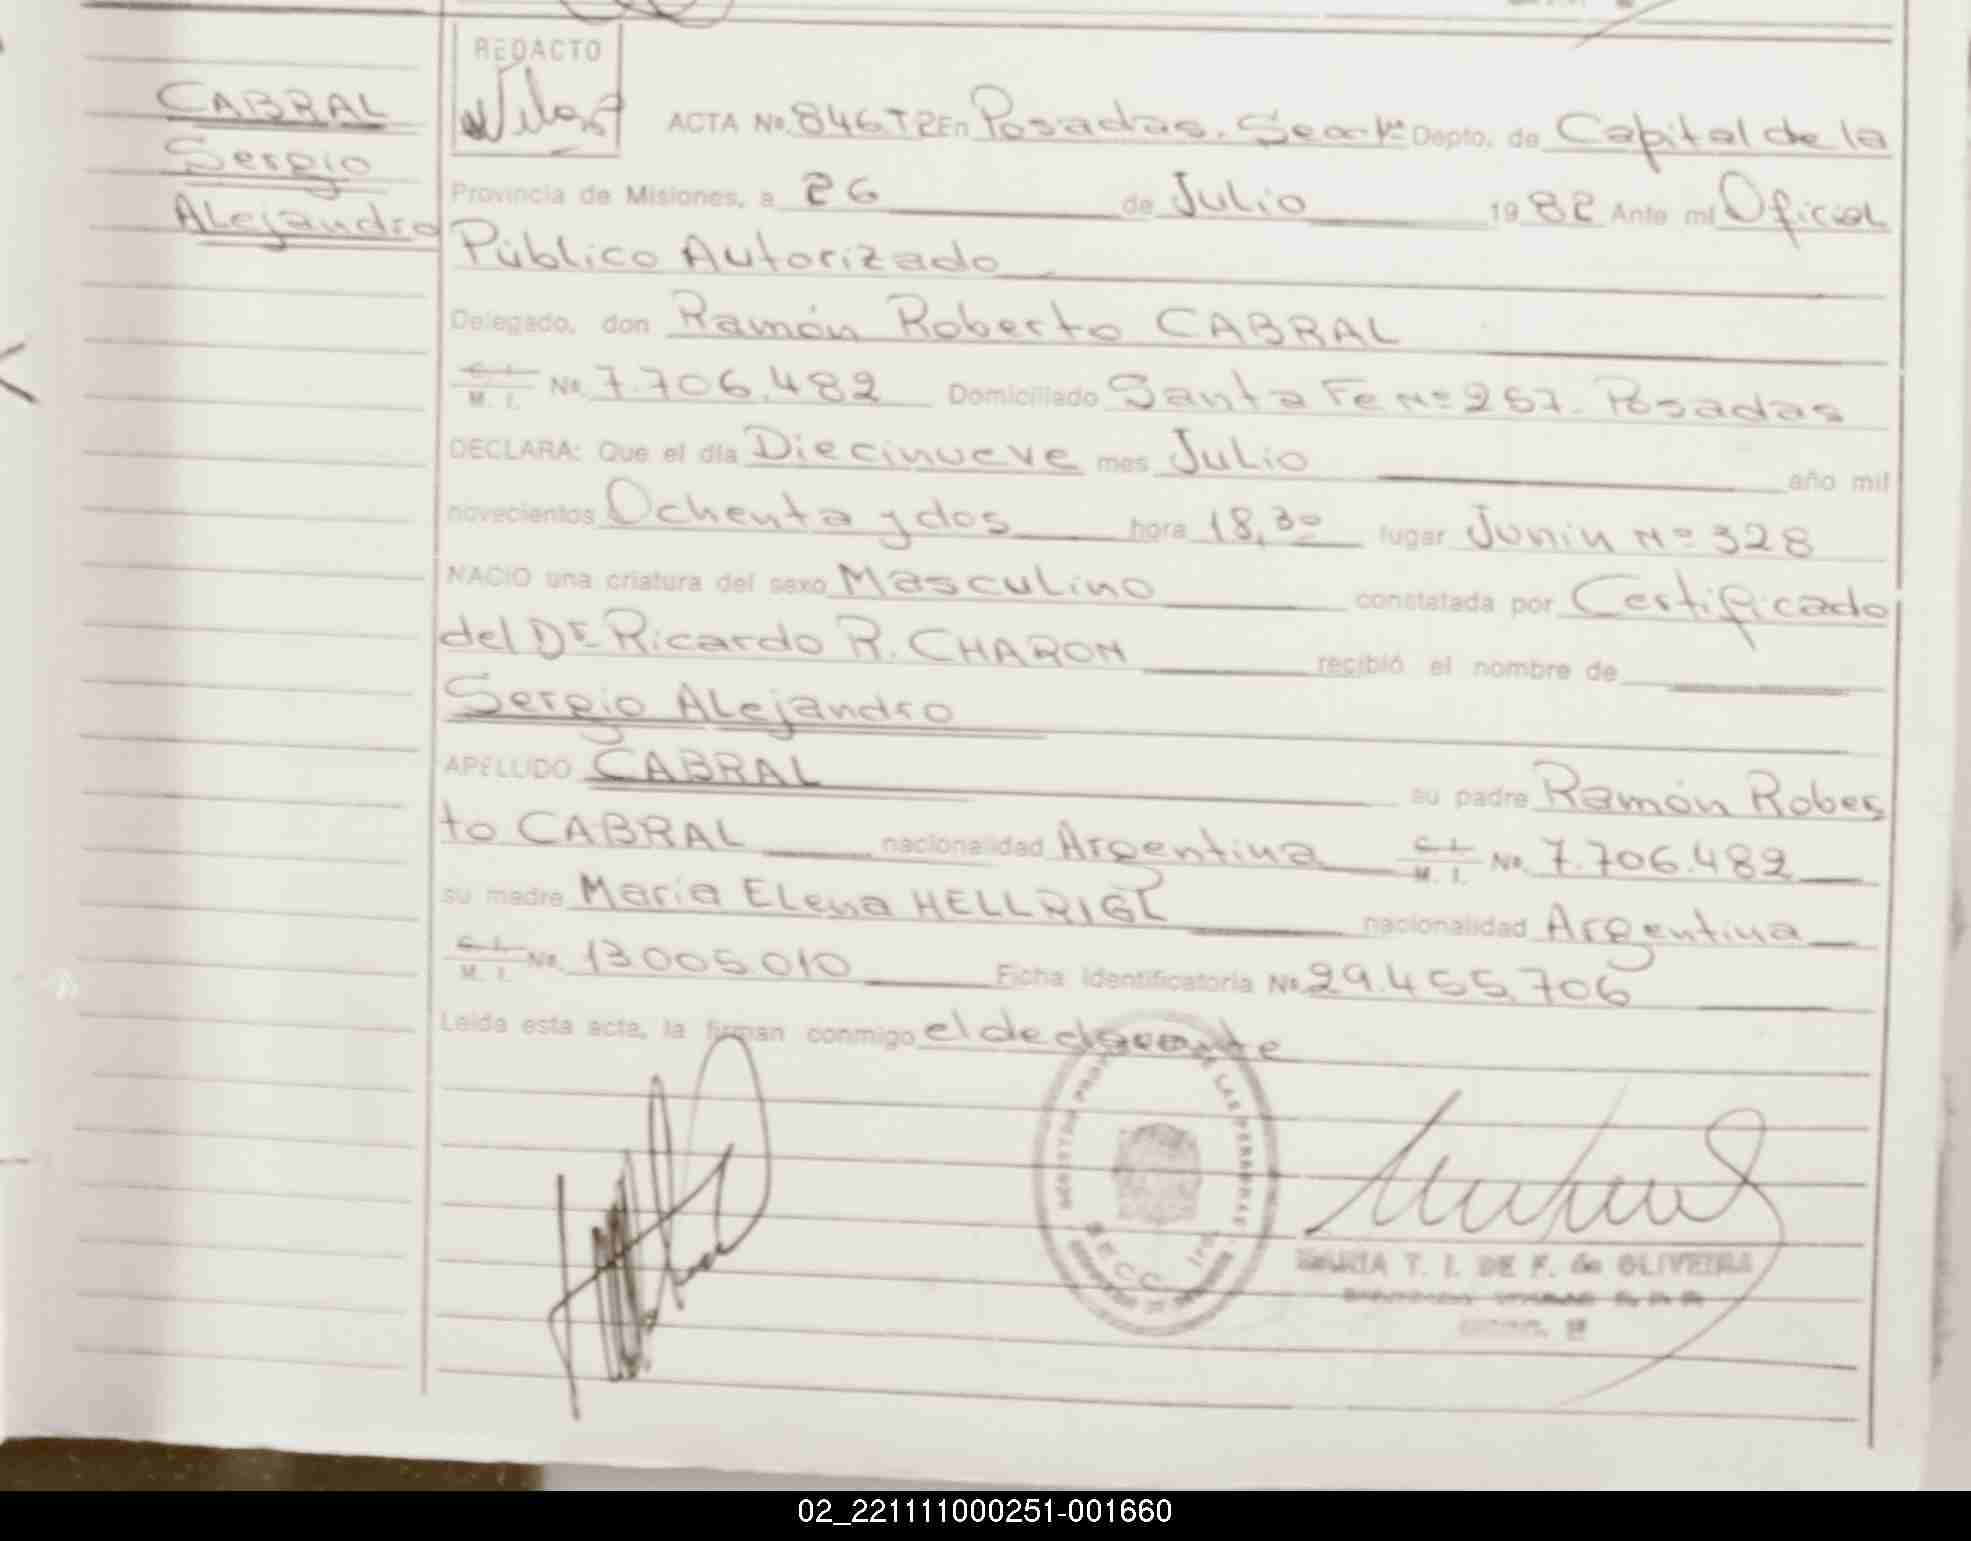 CABRAL
Sergio
Alejandro
REDACTO
ACTA No. 846 T2 En Posadas. Secc 1ra Depto. de Capital de la
Provincia de Misiones, a 26 de Julio 1982 Ante mi Oficial
Público Autorizado
Delegado, don Ramón Roberto CABRAL
C. I. M. I. No. 7.706.482 Domiciliado Santa Fe Nº 257. Posadas
DECLARA: Que el día Diecinueve mes Julio año mil
novecientos Ochenta y dos hora 18,30 lugar Junin Nº 328
NACIO una criatura del sexo Masculino constatada por Certificado
del Dr Ricardo R. CHARON recibió el nombre de
Sergio Alejandro
APELLIDO CABRAL su padre Ramón Rober
to CABRAL nacionalidad Argentina C. I. M. I. No. 7.706.482
su madre María Elena HELLRIGL nacionalidad Argentina
C. I. M. I. No. 13005.010 Ficha Identificatoria No 29.455.706
Leida esta acta, la firman conmigo el declarante
DE LAS PERSONAS
R.E.C.C. 1ra
MARIA T. I. DE F. de OLIVEIRA
02_221111000251-001660